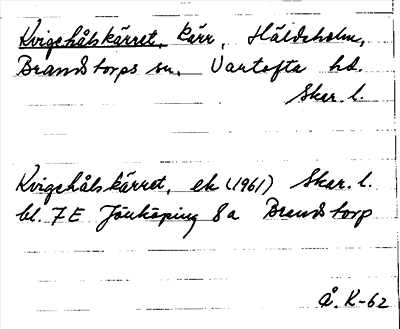 Kvigehålskärret, kärr, Häldeholm,
Brandstorps sn. Vartofta hd.
Skar. l.
Kvigehålskärret, ek (1961) Skar. l.
bl. 7E Jönköping 8a Brandstorp
Å. K-62